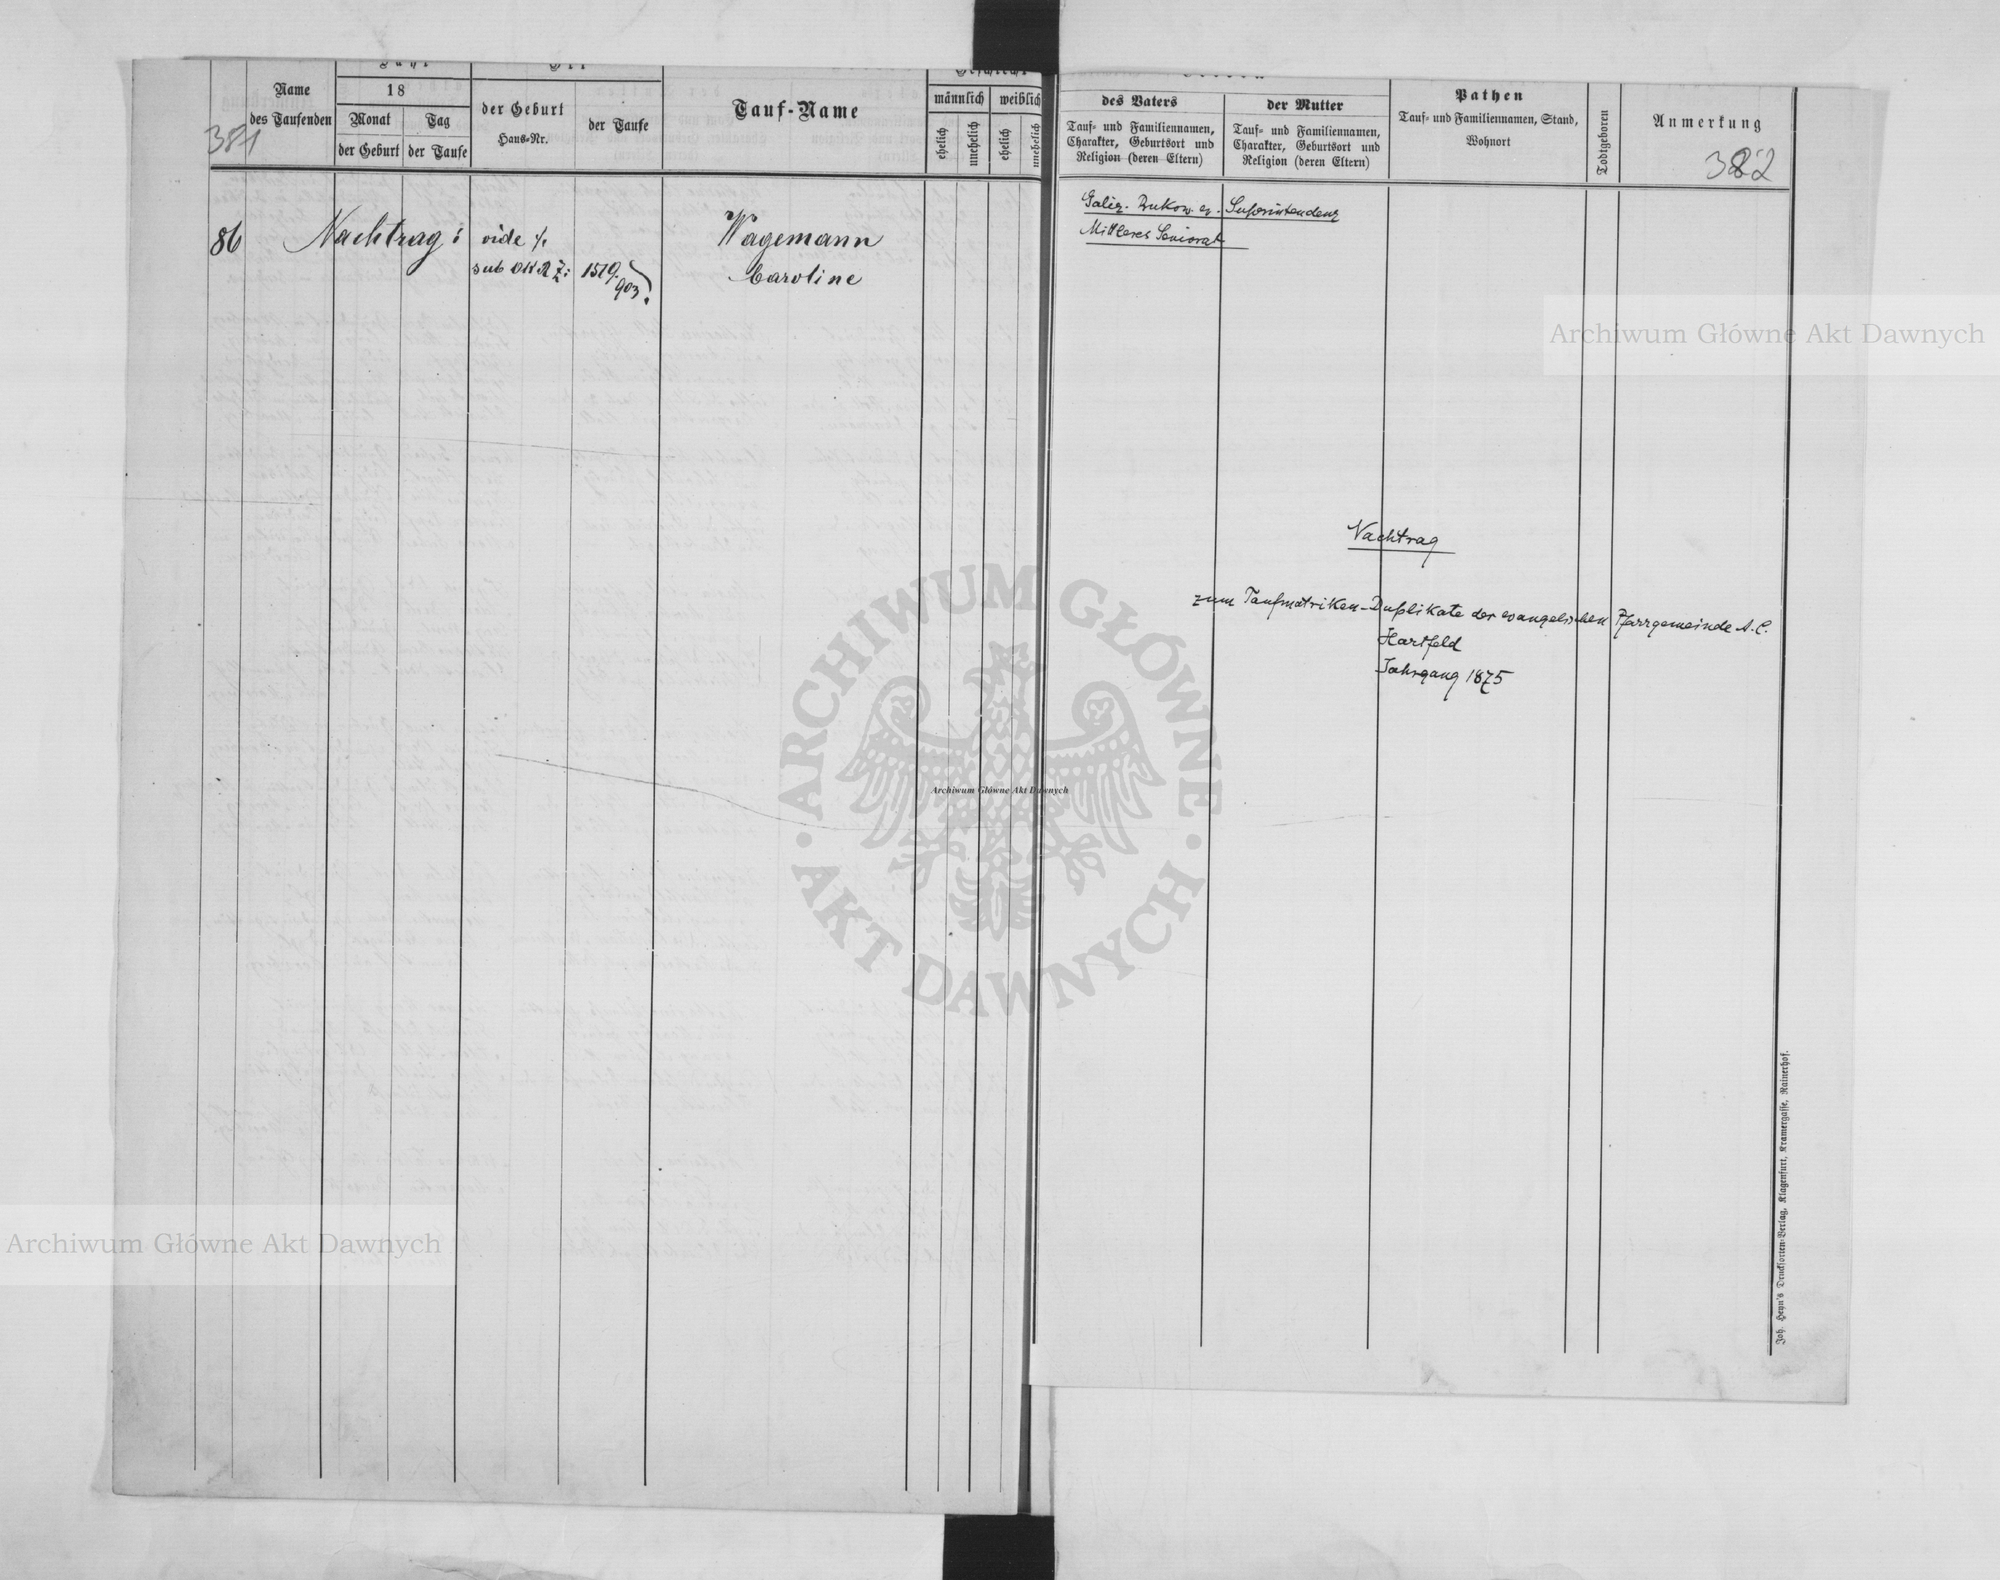 381
Name
des Taufenden
18
Monat
der Geburt
Tag
der Taufe
der Geburt
Haus-Nr.
der Taufe
Tauf-Name
männlich
weiblich
ehelich
unehelich
ehelich
unehelich
86 Nachtrag: vide ·/.
sub OKR Z: 1519/903.
Wagemann
Caroline
des Vaters
Tauf- und Familiennamen,
Charakter, Geburtsort und
Religion (deren Eltern)
der Mutter
Tauf- und Familiennamen,
Charakter, Geburtsort und
Religion (deren Eltern)
Pathen
Tauf- und Familiennamen, Stand,
Wohnort
Todtgeboren
Anmerkung
382
Galiz. Bukow. ev. Superintendenz
Mittleres Seniorat
Nachtrag
zum Taufmatriken-Duplikate der evangelischen Pfarrgemeinde A.C.
Hartfeld
Jahrgang 1875
Joh. Heyn's Drucksorten-Verlag, Klagenfurt, Kramergasse, Rainerhof.
Archiwum Główne Akt Dawnych
ARCHIWUM GŁÓWNE · AKT DAWNYCH ·
Archiwum Główne Akt Dawnych
Archiwum Główne Akt Dawnych